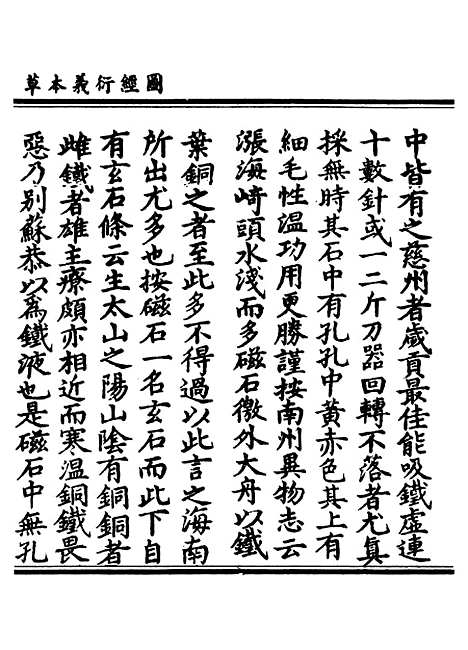 圖經衍義本草
中皆有之慈州者歲貢最佳能吸鐵虛連
十數針或一二斤刀器回轉不落者尤真
採無時其石中有孔孔中黄赤色其上有
細毛性溫功用更勝謹按南州異物志云
漲海崎頭水淺而多磁石徼外大舟以鐵
葉銅之者至此多不得過以此言之海南
所出尤多也按磁石一名玄石而此下自
有玄石條云生太山之陽山陰有銅銅者
雌鐵者雄主療頗亦相近而寒溫銅鐵畏
惡乃别蘇恭以爲鐵液也是磁石中無孔